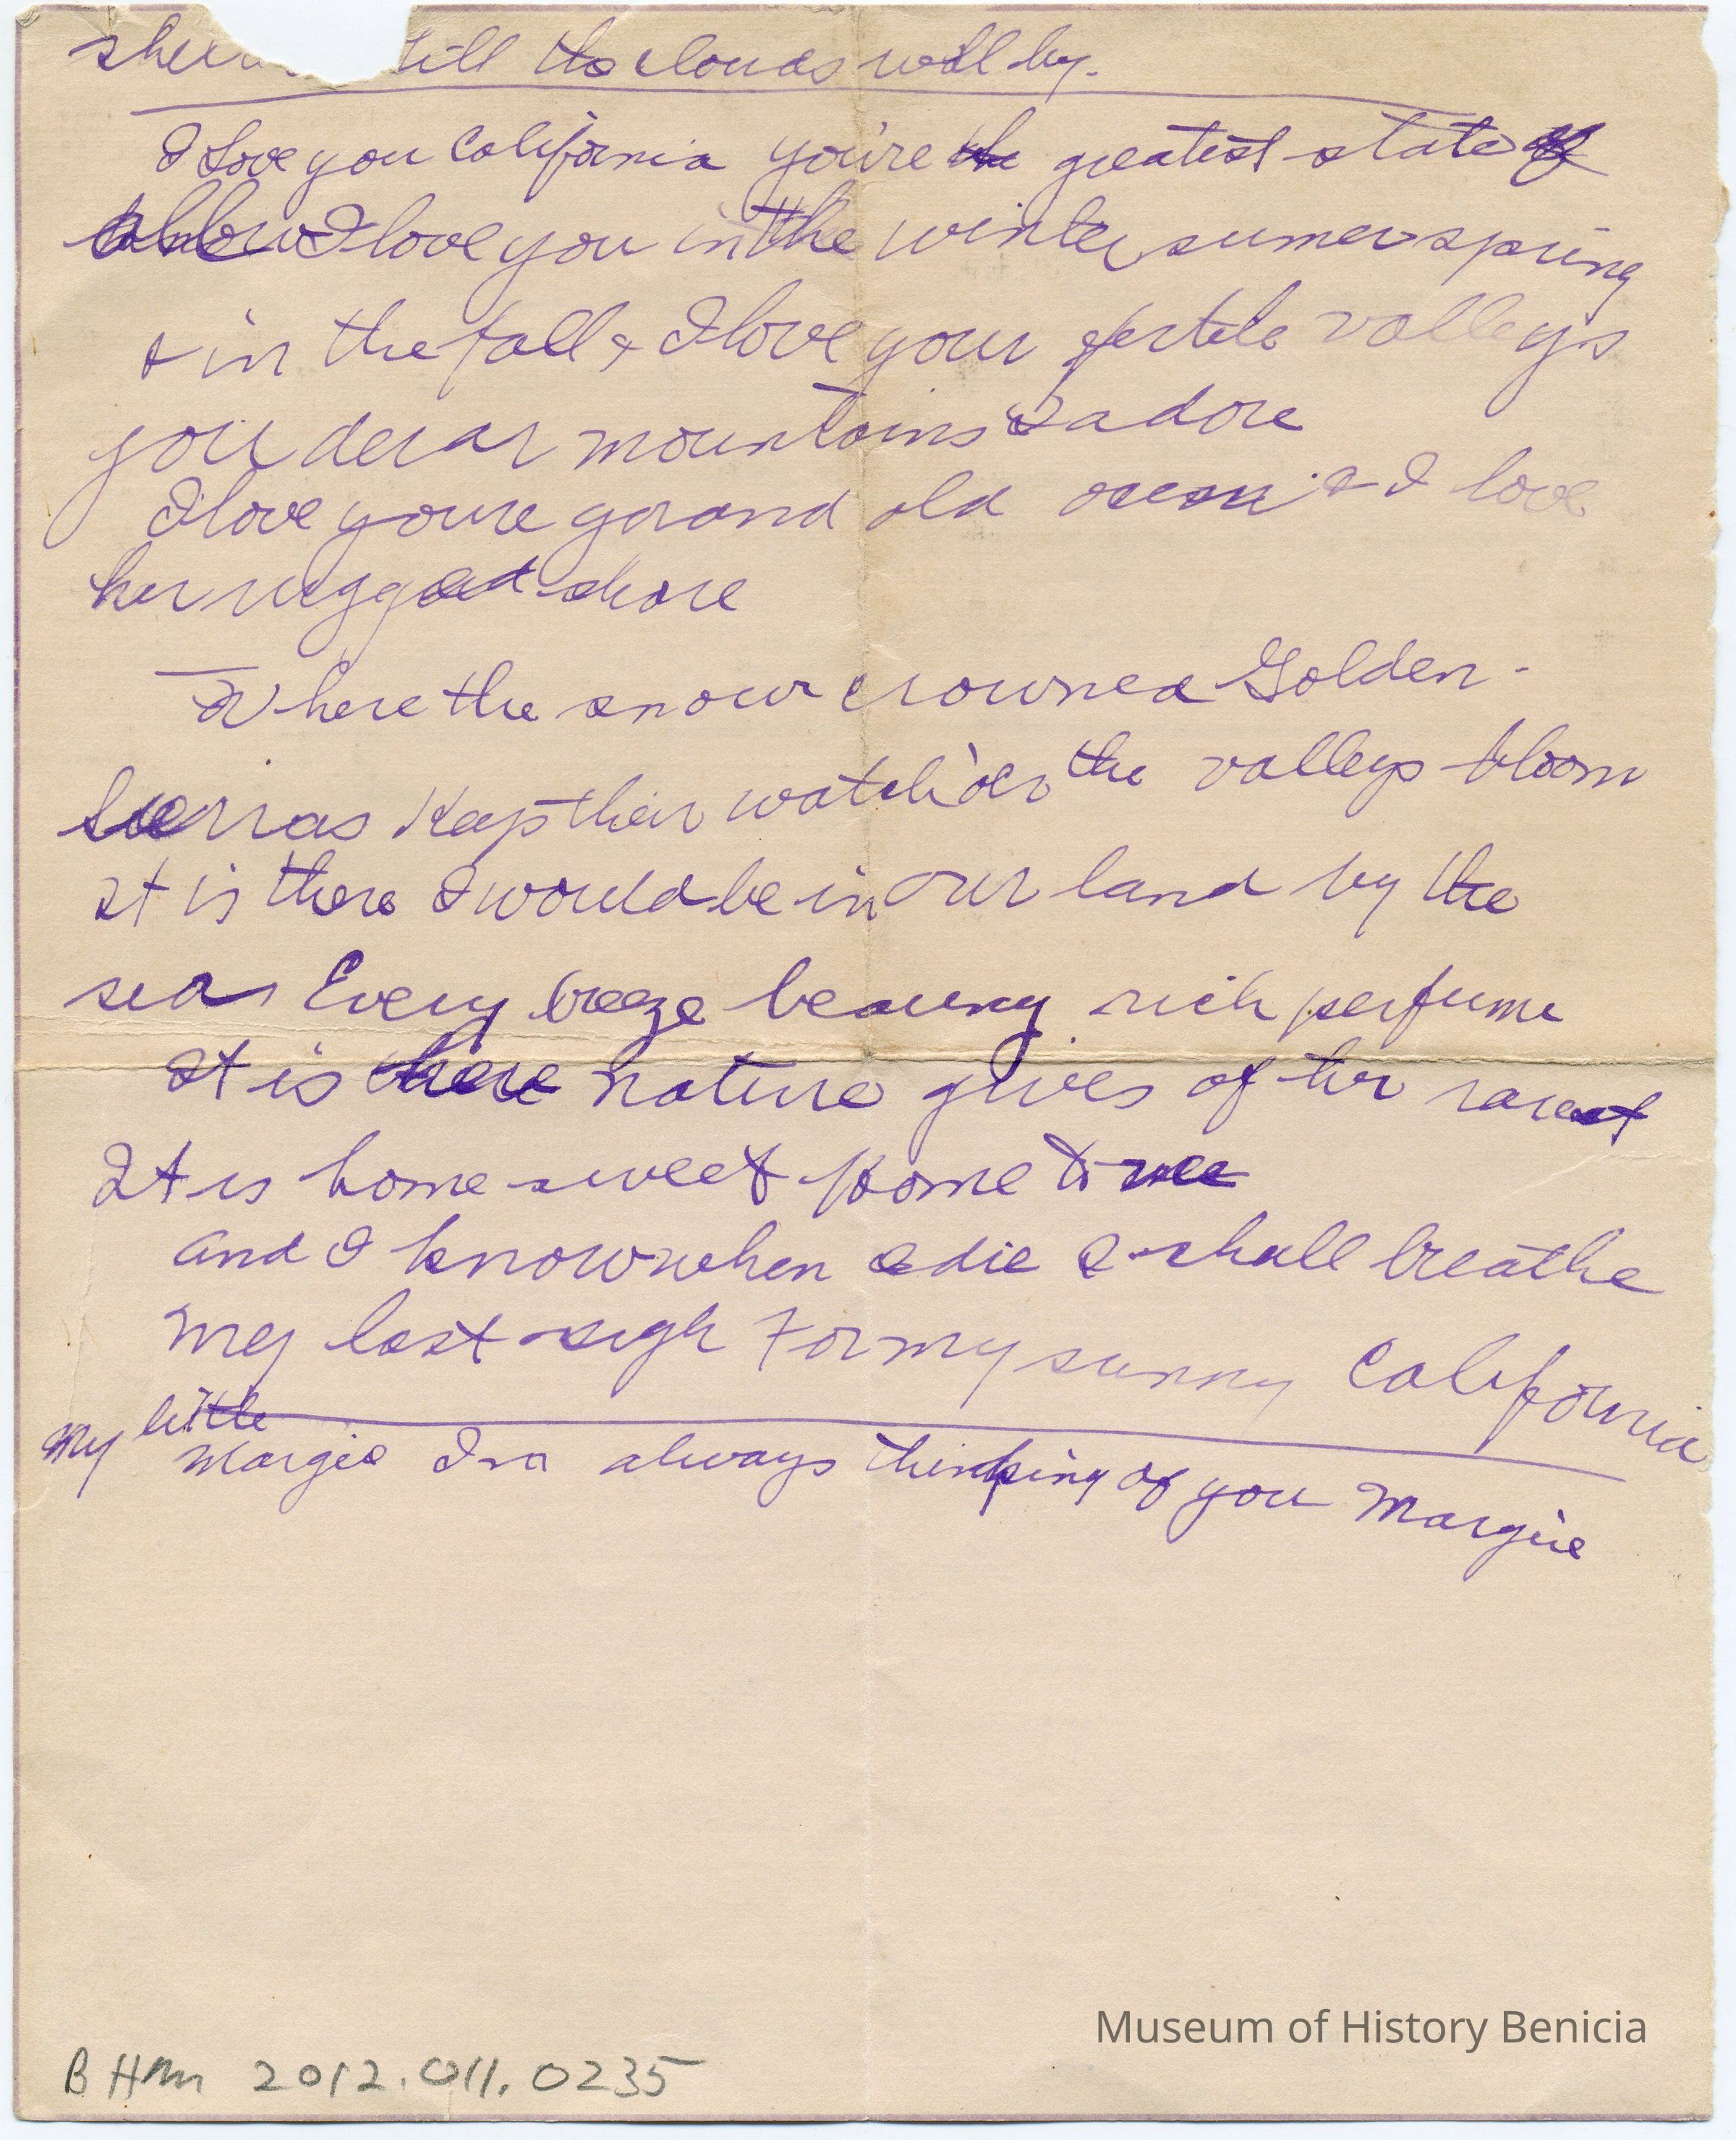 till the clouds roll by.
I Love you California you're the greatest state of
all I love you in the winter sumer spring
& in the fall & I love your fertile valleys
you dear mountains I adore
I love youre grand old ocean & I love
her rugged shore
Where the snow crowned Golden
Sierras Keep their watch o'er the valleys bloom
It is there I would be in our land by the
sea Every breeze bearing rich perfume
It is here nature gives of her rarest
It is home sweet home to me
and I know when I die I shall breathe
My last sigh For my sunny California
My little
Margie Im always thinking of you Margie
Museum of History Benicia
BHM 2012.011.0235